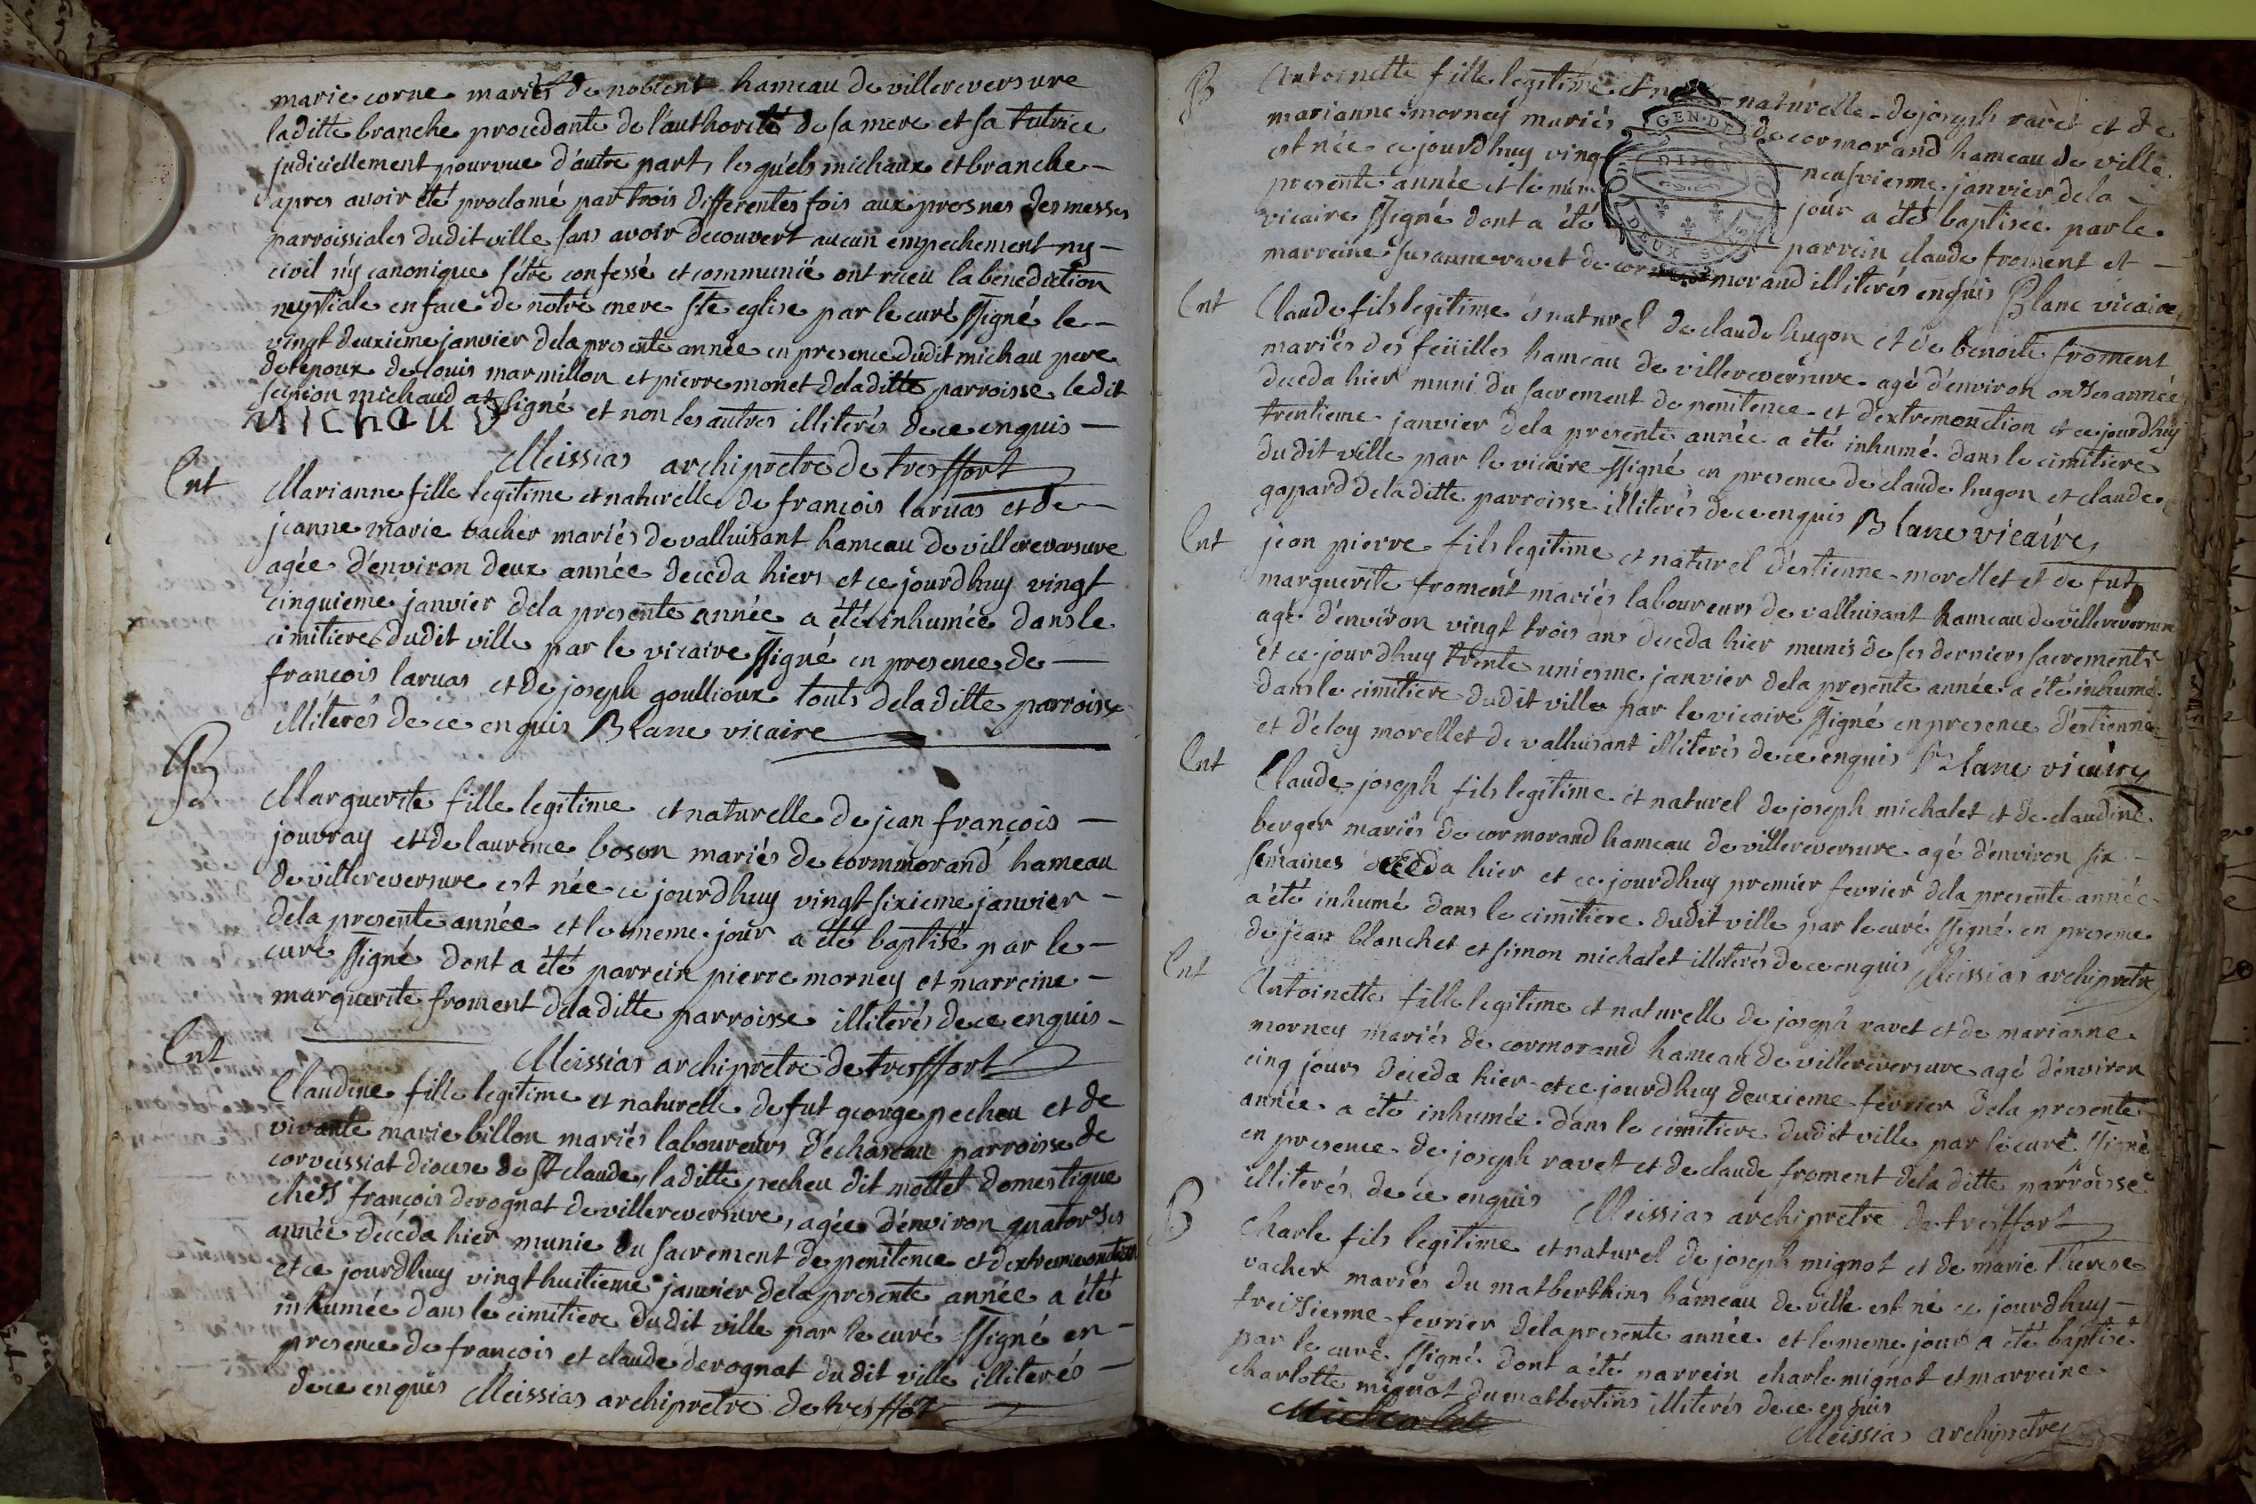 marie corne mariés de noblent hameau de villereversure
laditte branche procedante de l'authorité de sa mere et sa tutrice
judiciellement pourvue d'autre part, lesquels michaux et branche
apres avoir été proclamé par trois differentes fois aux prosnes des messes
parroissiales dudit ville sans avoir decouvert aucun empechement ny
civil ny canonique s'étre confessé et communié ont recu la benediction
nuptiale en face de notre mere ste eglise par le curé ssigné le
vingt deuxieme janvier dela presente année en presence dudit michau pere
de lepoux de louis marmillon et pierre monet deladitte parroisse ledit
scipion michaud at signé et non les autres illiterés de ce enquis
MIChAUD
Meissias archipretre de tresffort
Ent
Marianne fille legitime et naturelle de francois laruas et de
jeanne marie vacher mariés de valluisant hameau de villereversure
agée d'environ deux année deceda hiers et ce jourdhuy vingt
cinquieme janvier dela presente année a été inhumée dans le
cimitiere dudit ville par le vicaire ssigné en presence de
francois laruas et de joseph goullioux touts deladitte parroisse
illiterés de ce enquis Blanc vicaire
B
Marguerite fille legitime et naturelle de jean francois
jouvray et de laurence boson mariés de cormmorand hameau
de villereversure est née ce jourdhuy vingt sixieme janvier
dela presente année et le meme jour a été baptisé par le
curé ssigné dont a été parrein pierre morney et marreine
marguerite froment deladitte parroisse illiterés de ce enquis
Meissias archipretre de tresffort
Ent
Claudine fille legitime et naturelle de fut george pecheu et de
vivante marie billon mariés laboureurs de chaseau parroisse de
corveissiat diocese de St claude, laditte pecheu dit mottet domestique
ches francois derognat de villereversure, agée d'environ quatorses
année deceda hier munie du sacrement de penitence et dextremeonction
et ce jourdhuy vingt huitieme janvier dela presente année a été
inhumée dans le cimitiere dudit ville par le curé ssigné en
presence de francois et claude derognat dudit ville illiterés
de ce enquis Meissias archipretre de tresffort
B
Antoinette fille legitime et naturelle de joseph ravet et de
marianne morney mariés de cormorand hameau de ville
est née ce jourdhuy vingt neufvieme janvier dela
presente année et le mem jour a été baptisée par le
vicaire ssigné dont a été parrein claude froment et
marreine susanne ravet de cormorand illiterés enquis Blanc vicaire
GEN. DE
DIJON
DEUX S
Ent
Claude fils legitime et naturel de claude hugon et de benoite froment
mariés des feüilles hameau de villereversure agé d'environ onses année
deceda hier muni du sacrement de penitence et dextremonction et ce jourdhuy
trentieme janvier dela presente année a été inhumé dans le cimitiere
dudit ville par le vicaire ssigné en presence de claude hugon et claude
gapard deladitte parroisse illiterés de ce enquis Blanc vicaire
Ent
jean pierre fils legitime et naturel d'estienne morellet et de fut
marguerite froment mariés laboureurs de valluisant hameau de villereversure
agé d'environ vingt trois ans deceda hier munis de ses derniers sacrements
et ce jourdhuy trente unieme janvier dela presente année a été inhumé
dans le cimitiere dudit ville par le vicaire ssigné en presence d'estienne
et d'eloy morellet de valluisant illiterés de ce enquis Blanc vicaire
Ent
Claude joseph fils legitime et naturel de joseph michalet et de claudine
berger mariés de cormorand hameau de villereversure agé d'environ six
semaines deceda hier et ce jourdhuy premier fevrier dela presente année
a été inhumé dans le cimitiere dudit ville par le curé ssigné en presence
de jean blanchet et simon michalet illiterés de ce enquis Meissias archipretre
Ent
Antoinette fille legitime et naturelle de joseph ravet et de marianne
morney mariés de cormorand hameau de villereversure agé d'environ
cinq jours deceda hier et ce jourdhuy deuxieme fevrier dela presente
année a été inhumée dans le cimitiere dudit ville par le curé ssigné
en presence de joseph ravet et de claude froment deladitte parroisse
illiterés de ce enquis Meissias archipretre de tresffort
B
Charle fils legitime et naturel de joseph mignot et de marie therese
vacher mariés du matberthins hameau de ville est né ce jourdhuy
treisieme fevrier dela presente année et le meme jour a été baptisé
par le curé ssigné dont a été parrein charle mignot et marreine
charlotte mignot du matbertins illiterés de ce enquis
Meissias archipretre